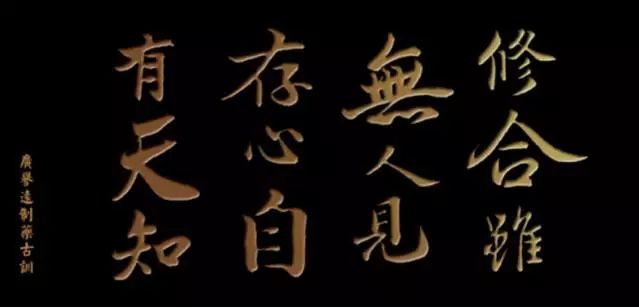 修合雖
無人見
存心自
有天知
廣譽遠制藥古訓